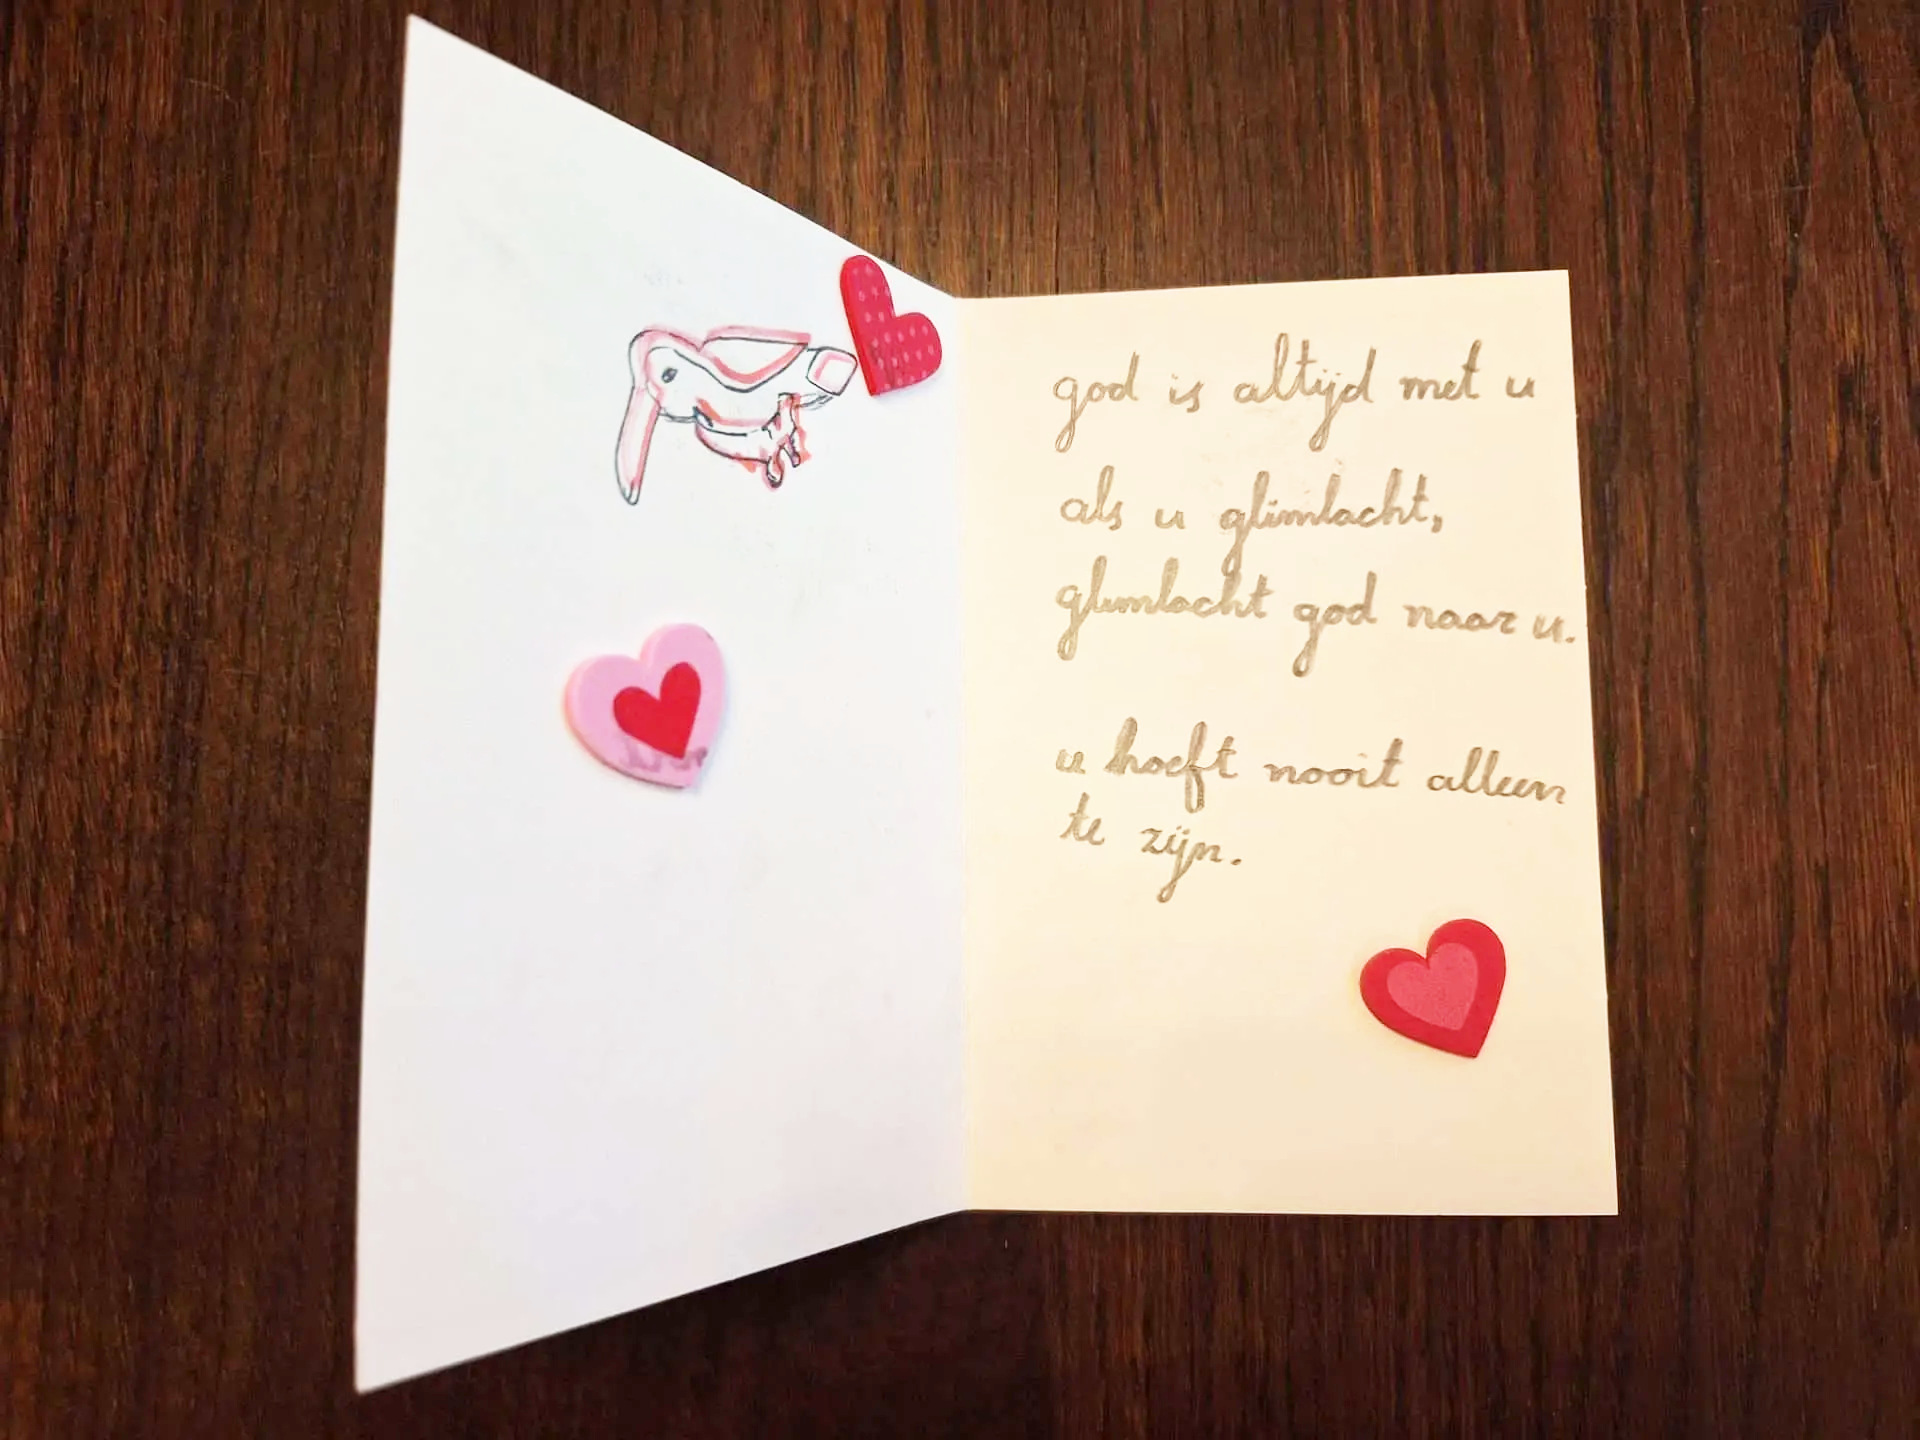 god is altijd met u
als u glimlacht,
glimlacht god naar u.
u hoeft nooit alleen
te zijn.